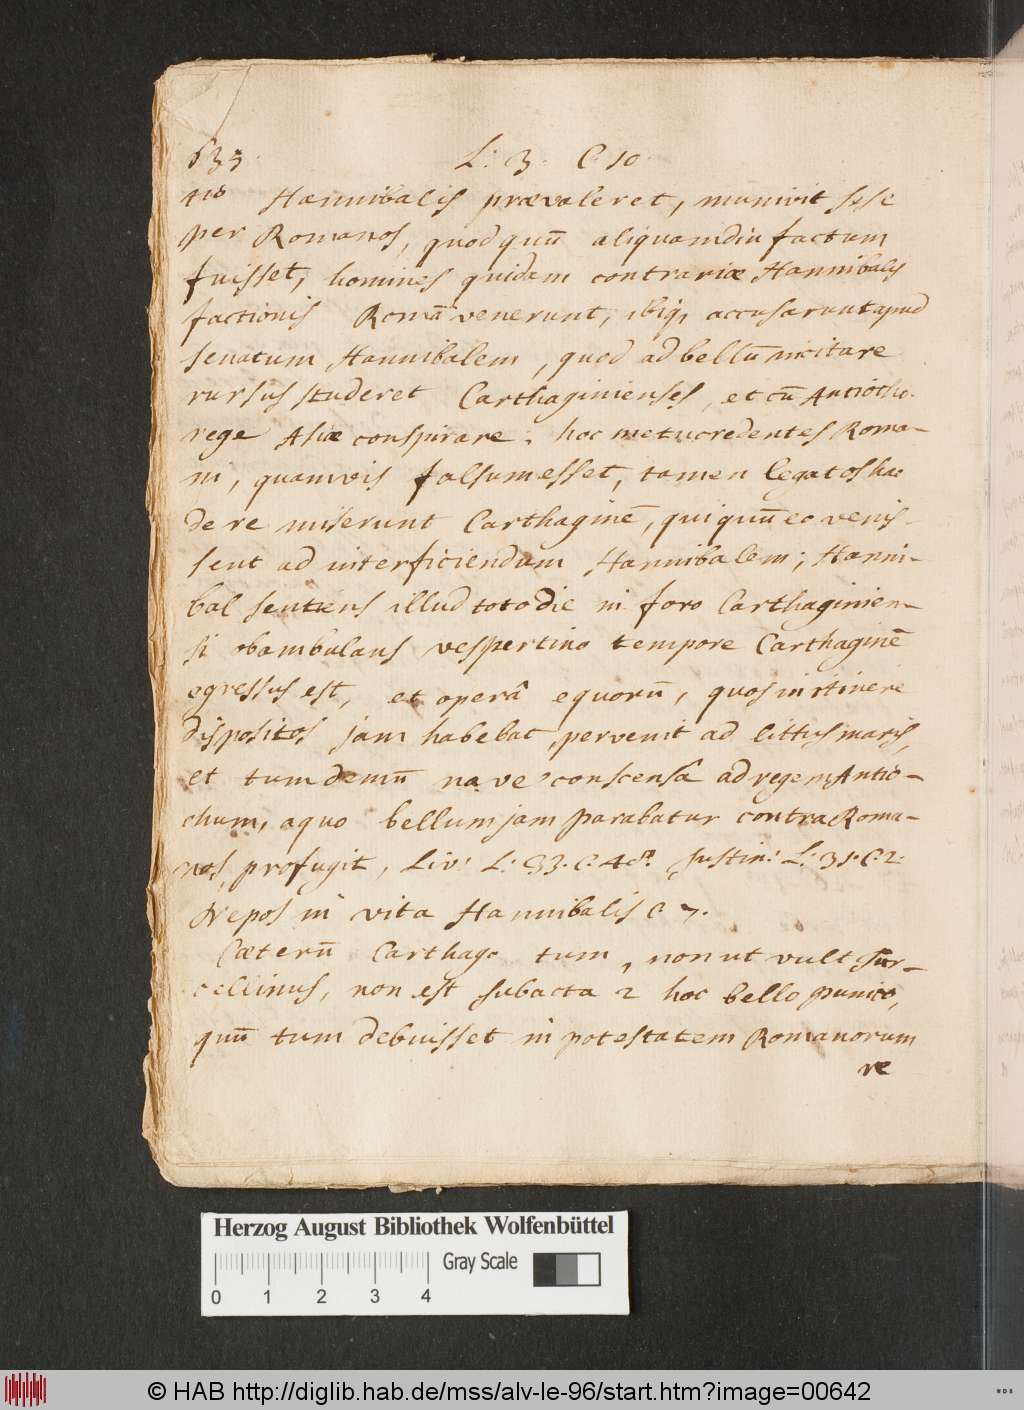 635. L: 3. C. 10.
no Hannibalis prævaleret, munivit sese
per Romanos, quod quū aliquamdiu factum
fuisset, homines quidam contrariæ Hannibalis
factionis Romā venerunt, ibiq, accusarunt apud
senatum Hannibalem, quod ad bellū incitare
rursus studeret Carthaginienses, et cū Antiocho.
rege Asiæ conspirare; hoc metu credentes Roma-
ni, quamvis falsum esset, tamen legatos hac
de re miserunt Carthaginē, qui quū eo venis-
sent ad interficiendum Hannibalem; Hanni-
bal sentiens illud toto die in foro Carthaginien-
si obambulans vespertino tempore Carthaginē
egressus est, et operâ equorū, quos in itinere
dispositos jam habebat, pervenit ad littus maris,
et tum demū nave conscensâ ad regem Antio-
chum, a quo bellum jam parabatur contra Roma-
nos, profugit, Liv: L: 33. C. Justin: L: 31. C. 2.
Nepos in vita Hannibalis C. 7.
Cæterū Carthago tum, non ut vult
cellinus, non est subacta 2 hoc bello punico,
quū tum debuisset in potestatem Romanorum
re
Herzog August Bibliothek Wolfenbüttel
Gray Scale
0 1 2 3 4
© HAB http://diglib.hab.de/mss/alv-le-96/start.htm?image=00642